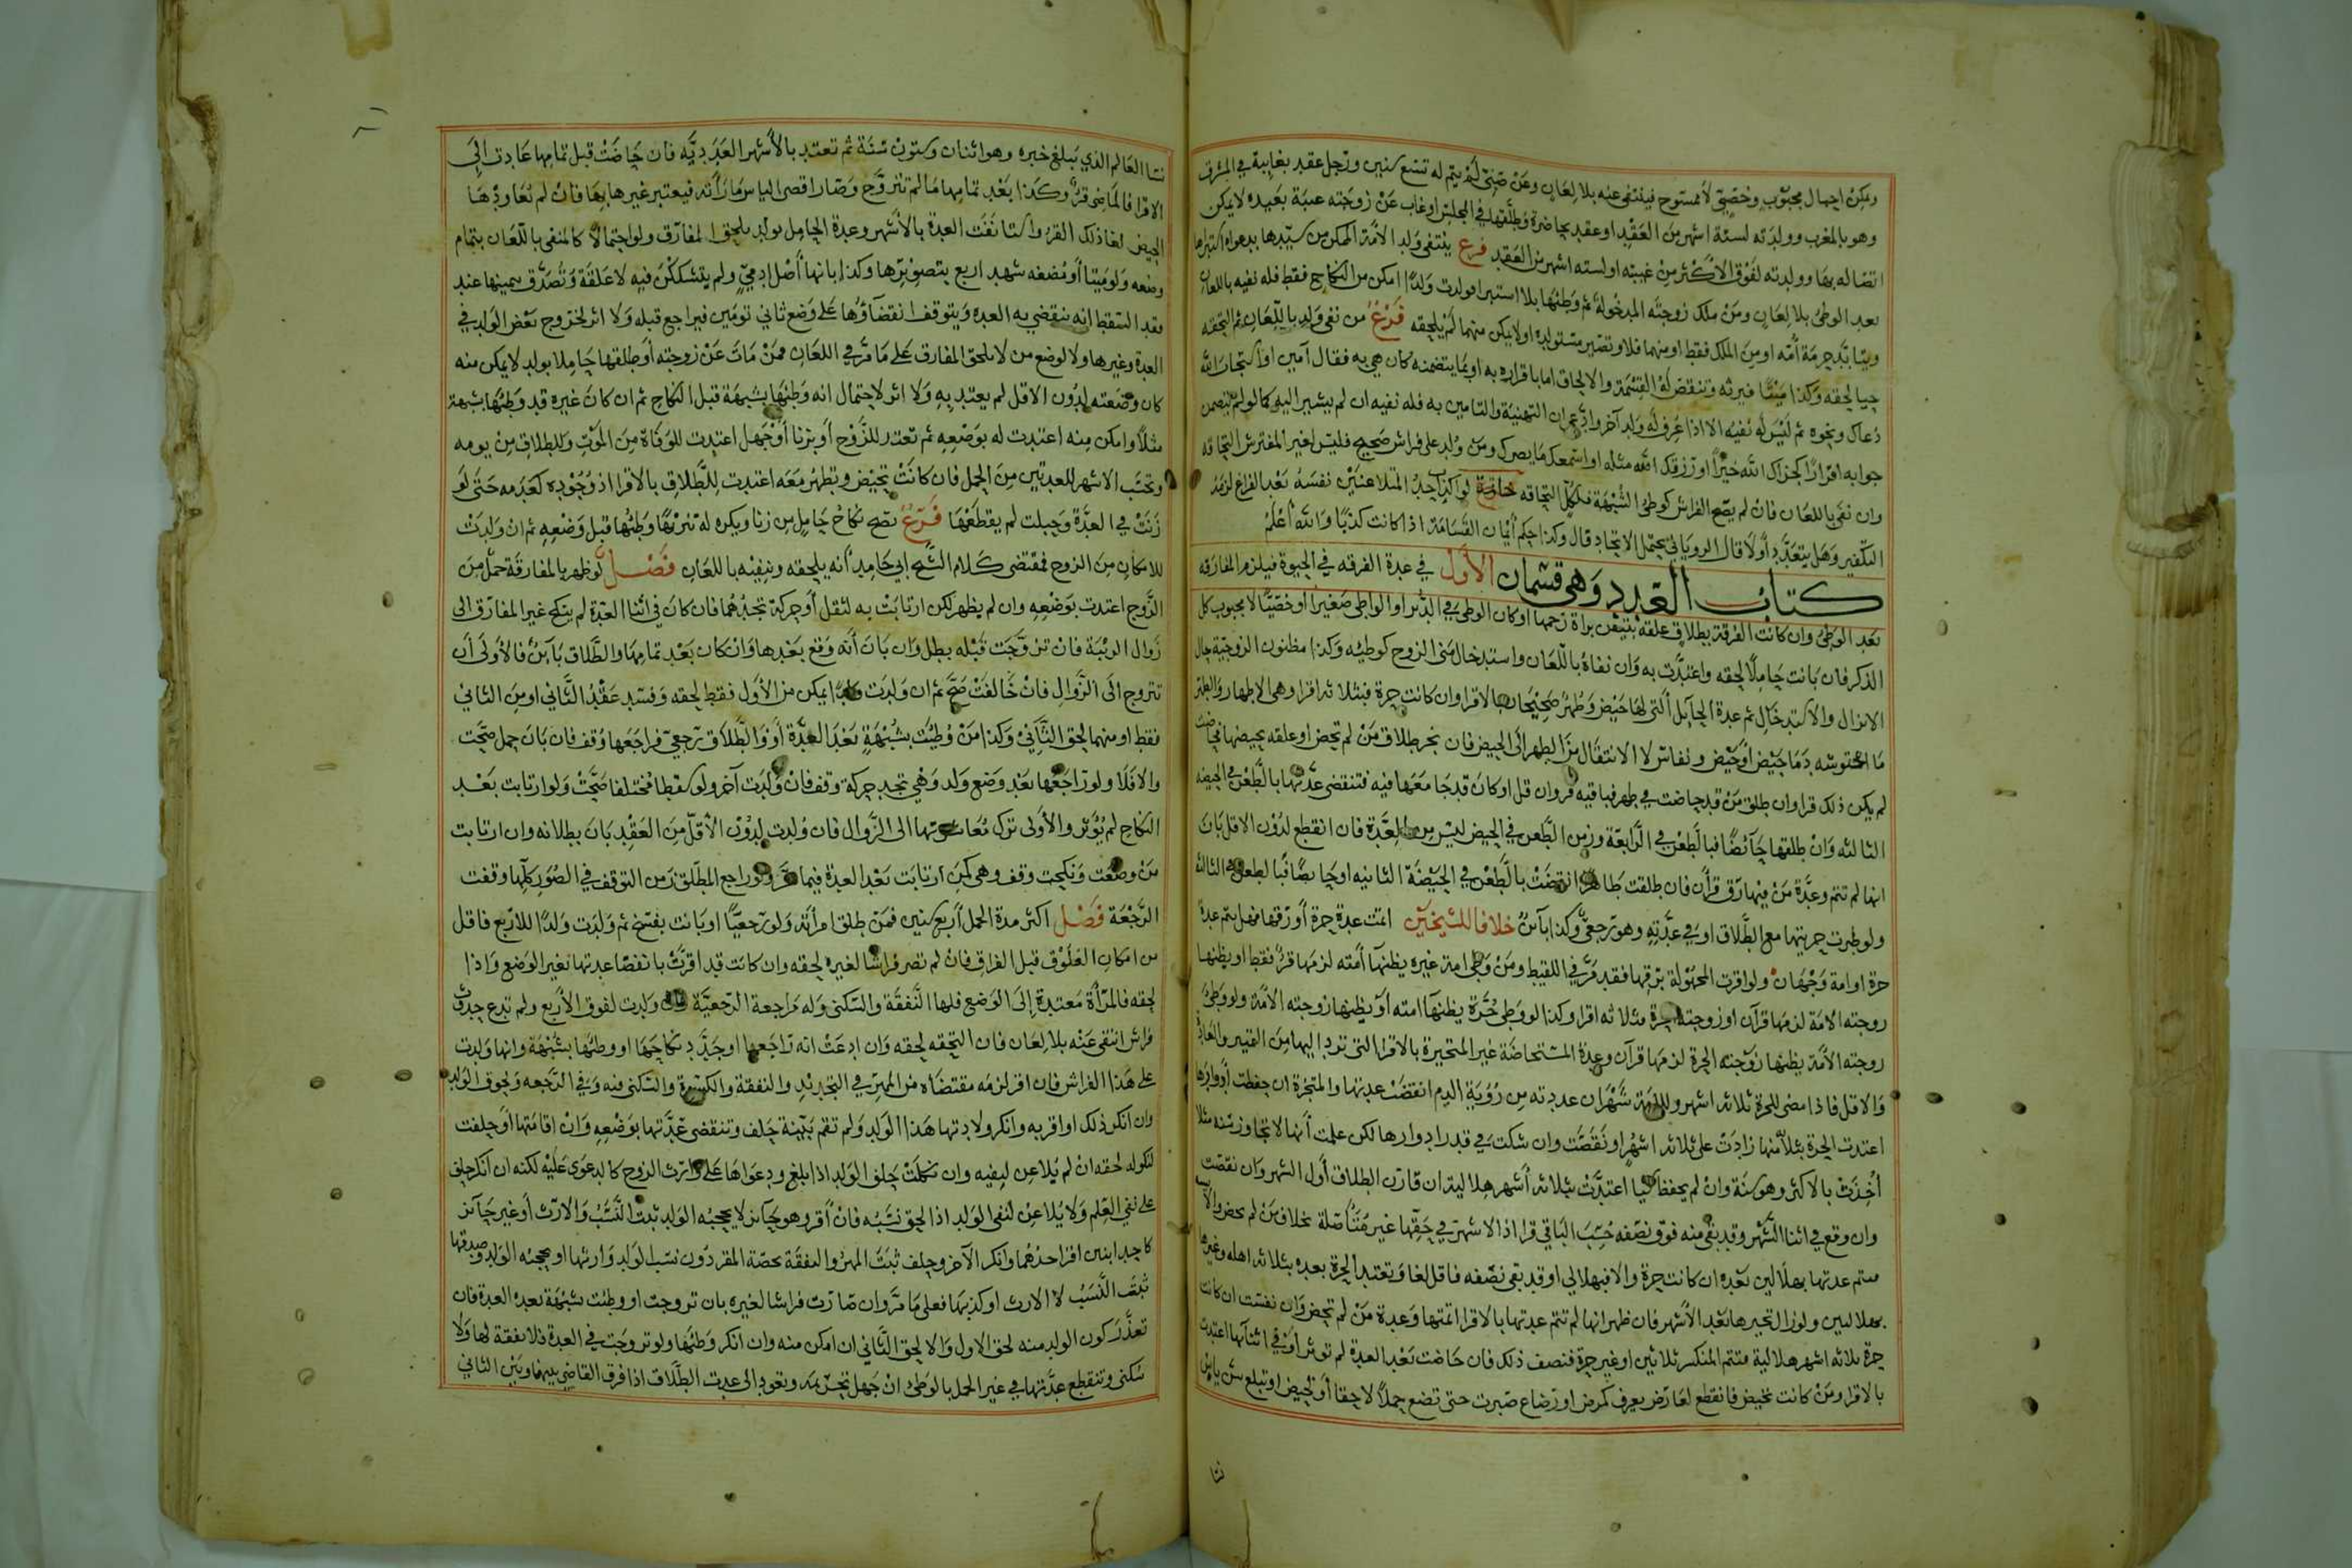 ويمكن احبال مجبوب وخصي لا ممسوح فينتفي عنه بلا لعان وعن صبي لم يتم له تسع سنين ورجل عقد بغايبة في المشرق
وهو بالمغرب وولدته لستة اشهر من العقد او عقد بحاضرة وطلقها في المجلس او غاب عن زوجته غيبة بعيدة لا يمكن
اتصاله بها وولدته لفوق الاكثر من غيبته او لستة اشهر من العقد فرع ينتفي ولد الامة الممكن من سيدها بدعواه استبراها
بعد الوطئ بلا لعان ومن ملك زوجته المدخولة ثم وطئها بلا استبرا فولدت ولدًا امكن من النكاح فقط فله نفيه باللعان
ويتابد حرمة أمه او من الملك فقط او منهما فلا وتصير مستولده او لا يمكن منهما لم يلحقه فرع من نفى ولد باللعان ثم التحقه
حيا لحقه وكذا ميتا فيرثه وتنقض له القسمة والالحاق اما باقراره به او بما يتضمنه كان هني به فقال آمين او استجاب الله
دعاك ونحوه ثم ليس له نفيه الا اذا عرف له ولد آخر وادعى ان التهنية والتامين به فله نفيه ان لم يشير اليه كما لو لم يتضمن
جوابه اقرارًا كجزاك الله خيرًا او رزقك الله مثله او اسمعك ما يسرك ومن ولد على فراش صحيح فليس لغير المفترش التحاقه
وان نفي باللعان فان لم يصح الفراش كوطئ الشبهة فلكل التحاقه خاتمة لو اكذب احد المتلاعنين نفسه بعد الفراغ لزمه
التكفير وهل يتعدد أولا قال الروياني يحتمل الاتحاد قال وكذا حكم أيمان القسامة اذا كانت كذبًا والله أعلم
كتاب العدد وهي قسمان الأول في عدة الفرقه في الحيوة فيلزم المفارقه
بعد الوطئ وان كانت الفرقة بطلاق علقه بتيقن براة رحمها او كان الوطئ في الدبر او الواطئ صغيرا او خصيا لا مجبوب كل
الذكر فان بانت حاملًا لحقه واعتدت به وان نفاه باللعان واستدخال مني الزوج كوطئه وكذا مظنون الزوجية حال
الانزال والاستدخال ثم عدة الحايل التي لها حيض وطهر صحيحان بالاقرا وان كانت حرة فبثلاثه اقرا وهي الاطهار والطهر
ما احتوشه دما حيض أو حيض ونفاس لا الانتقال من الطهر الى الحيض فان نجز طلاق من لم تحض او علقه بحيضها فحاضت
لم يكن ذلك قرا وان طلق من قد حاضت في طهر فباقيه قرء وان قل او كان قد جامعها فيه فتنقضي عدتها بالطعن في الحيضه
الثالثه وان طلقها حآئضًا فبالطعن في الرابعة وزمن الطعن في الحيض ليس من العدة فان انقطع لدون الاقل بان
انها لم تتم وعدة من فيها رق قرأن فان طلقت طاهرا انقضت بالطعن في الحيضة الثانيه او حايضًا فبالطعن في الثالثه
ولو طرت حريتها مع الطلاق او في عدته وهو رجعي وكذا بآئن خلافا للشيخين اتمت عدة حرة أو رقها فهل يتم عدة
حرة او امة وجهان ولو اقرت المجهولة برقها فقد مر في اللقيط ومن وطى امة غيره يظنها أمته لزمها قرء فقط او يظنها
زوجته الامة لزمها قرآن او زوجته الحرة فثلاثه اقرا وكذا لو وطئ حرة يظنها امته أو يظنها زوجته الأمة ولو وطئ
زوجته الأمة يظنها زوجته الحرة لزمها قرآن وعدة المستحاضة غير المتحيرة بالاقرا التي ترد اليها من التمييز والعادة
والاقل فاذا مضى للحرة ثلاثه اشهر وللأمة شهران عددته من رؤية الدم انقضت عدتها والمتحيرة ان حفظت أدوارها
اعتدت الحرة بثلاثه منها زادت على ثلاثه اشهر او نقصت وان شكت في قدر ادوارها لكن علمت أنها لا تجاوز سنه مثلا
أخذت بالاكثر وهو سنة وان لم تحفظ شيا اعتدت بثلاثه أشهر هلالية ان قارن الطلاق أول الشهر وان نقصت
وان وقع في اثنا الشهر وقد بقي منه فوق نصفه حسب الباقي قرا اذ الاشهر في حقها غير متأصلة بخلاف من لم تحض والآيسة
فتتم عدتها بهلالين بعده ان كانت حرة والا فبهلالي او قد بقي نصفه فاقل لغا وتعتد الحرة بعده بثلاثه اهله وغيرها
بهلالين ولو زال التحير ها بعد الأشهر فان ظهر انها لم تتم عدتها بالاقرا اتمتها وعدة من لم تحض وان نفست ان كانت
حرة ثلاثه اشهر هلالية فتتم المنكسر ثلاثين او غير حرة فنصف ذلك فان حاضت بعد العدة لم توثر أو في اثنآئها اعتدت
بالاقرا ومن كانت تحيض فانقطع لعارض يعرف كمرض او رضاع صبرت حتى تضع حملًا لاحقا أو تحيض او تبلغ سن ياس
نسا
نسا العالم الذي يبلغ خبره وهو اثنان وستون سنة ثم تعتد بالأشهر العددية فان حاضت قبل تمامها عادت الى
الاقرا فالماضي قرء وكذا بعد تمامها ما لم تتزوج وصار اقصى الياس ما رأته فيعتبر غيرها بها فان لم تعاودها
الحيض لغا ذلك القرء واستانفت العدة بالأشهر وعدة الحامل بولد يلحق المفارق ولو احتمالا كالمنفي باللعان بتمام
وضعه ولو ميتا أو مضغه شهد اربع بتصويرها وكذا بانها أصل ادمي ولم يتشككن فيه لا علقة وتصدق بيمينها عند
فقد السقط انه تنقضي به العده ويتوقف انقضآؤها على وضع ثاني تومين فيراجع قبله ولا اثر لخروج بعض الولد في
العدة وغيرها ولا لوضع من لا يلحق المفارق على ما مر في اللعان فمن مات عن زوجته أو طلقها حاملا بولد لا يمكن منه
كان وضعته لدون الاقل لم يعتد به ولا اثر لاحتمال انه وطئها بشبهة قبل النكاح ثم ان كان غيره قد وطئها بشبهة
مثلًا وامكن منه اعتدت له بوضعه ثم تعتد للزوج أو بزنا أو جهل اعتدت للوفاة من الموت وللطلاق من يومه
وتحسب الاشهر للعدتين من الحمل فان كانت تحيض وتطهر معه اعتدت للطلاق بالاقرا اذ وجوده كعدمه حتى لو
زنت في العدة وحبلت لم يقطعها فرع يصح نكاح حامل من زنا ويكره له تزوجها وطئها قبل وضعه ثم ان ولدت
للامكان من الزوج فمقتضى كلام الشيخ ابي حامد أنه يلحقه وينفيه باللعان فصل لو ظهر بالمفارقة حمل من
الزوج اعتدت بوضعه وان لم يظهر لكن ارتابت به لثقل أو حركة تجدهما فان كان في اثنا العدة لم ينكح غير المفارق الى
زوال الريبة فان تزوجت قبله بطل وان بان أنه وقع بعدها وان كان بعد تمامها والطلاق بآئن فالأولى أن
تتزوج الى الزوال فان خالفت صح ثم ان ولدت ولدا يمكن من الأول فقط لحقه وفسد عقد الثاني او من الثاني
فقط او منهما لحق الثاني وكذا من وطئت بشبهة بعد العدة أو والطلاق رجعي فراجعها وقف فان بان حمل صحت
والا فلا ولو راجعها بعد وضع ولد وهي تجد حركة وقف فان ولدت آخر ولو سقطا مختلفا صحت ولو ارتابت بعد
النكاح لم يؤثر والأولى ترك معاشرتها الى الزوال فان ولدت لدون الأقل من العقد بان بطلانه وان ارتابت
من وضعت ونكحت وقف وهي كمن ارتابت بعد العدة فيما مر ولو راجع المطلق زمن التوقف في الصور كلها وقفت
الرجعة فصل اكثر مدة الحمل أربع سنين فمن طلق امرأته ولو رجعيًا او بانت بفسخ ثم ولدت ولدًا للاربع فاقل
من امكان العلوق قبل الفراق فان لم تصر فراشا لغيره لحقه وان كانت قد اقرت بانقضا عدتها بغير الوضع واذا
لحقه فالمرأة معتدة إلى الوضع فلها النفقة والسكنى وله مراجعة الرجعية فان ولدت لفوق الأربع ولم تدع حدوث
فراش انتفى عنه بلا لعان فان التحقه لحقه وان ادعت انه راجعها او جدد نكاحها او وطئها بشبهة وانها ولدت
على هذا الفراش فان اقر لزمه مقتضاه من المهر في التجديد والنفقة والكسوة والسكنى فيه وفي الرجعه ولحوق الولد
وان انكر ذلك او اقر به وانكر ولادتها هذا الولد ولم تقم بينة حلف وتنقضي عدتها بوضعه وان اقامتها أو حلفت
لنكوله لحقه ان لم يلاعن لنفيه وان نكلت حلف الولد اذا بلغ ودعواها على وارث الزوج كالدعوى عليه لكنه ان انكر حلف
على نفي العلم ولا يلاعن لنفي الولد اذا لحق نسبه فان أقر وهو حآئز لا يحجبه الولد ثبت النسب والارث أو غير حآئز
كاحد ابنين اقر احدهما وانكر الآخر وحلف ثبت المهر والنفقة بحصة المقر دون نسب الولد وارثها او يحجبه الولد وصدقها
ثبت النسب لا الارث او كذبها فعلى ما مر وان صارت فراشا لغيره بان تزوجت او وطئت بشبهة بعد العدة فان
تعذر كون الولد منه لحق الاول والا لحق الثاني ان امكن منه وان انكر وطئها ولو تزوجت في العدة فلا نفقة لها ولا
سكنى وتنقطع عدتها في غير الحمل بالوطئ ان جهل تحريمه وتعود الى عدة الطلاق اذا فرق القاضي بينها وبين الثاني